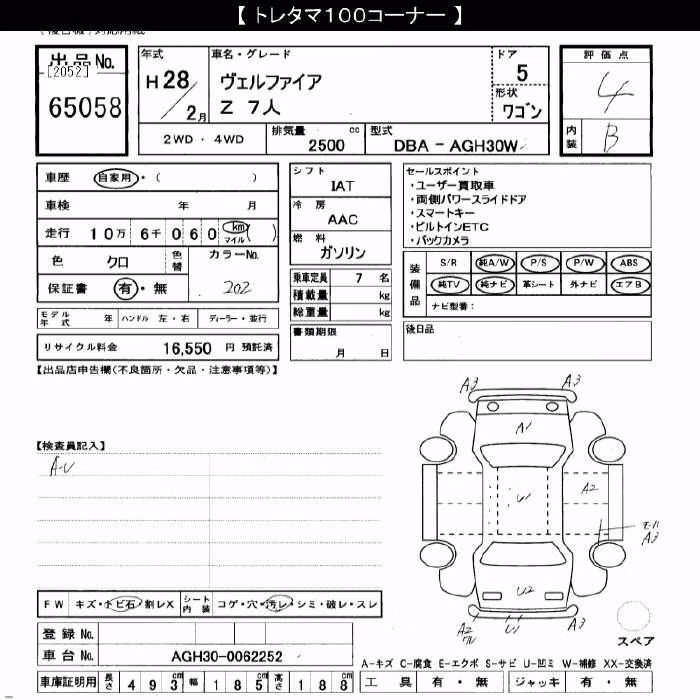 【 トレタマ100コーナー 】
出品No. [2052] 65058
年式 H28/2月
車名・グレード ヴェルファイア Z 7人
ドア 5
形状 ワゴン
評価点 4
内装 B
2WD ・ 4WD
排気量 2500 cc
型式 DBA － AGH30W
車歴 自家用・( )
車検 年 月
走行 10万 6千 0 6 0 km マイル ( )
色 クロ 色替 カラーNo. 202
保証書 有・無
シフト IAT
冷房 AAC
燃料 ガソリン
乗車定員 7 名
積載量 kg
総重量 kg
セールスポイント
・ユーザー買取車
・両側パワースライドドア
・スマートキー
・ビルトインETC
・バックカメラ
装備品 S/R 純A/W P/S P/W ABS
純TV 純ナビ 革シート 外ナビ エアB
ナビ型番：
モデル年式 年 ハンドル 左・右 ディーラー・並行
リサイクル料金 16,550 円 預託済
書類期限 月 日
後日品
【出品店申告欄(不良箇所・欠品・注意事項等)】
A3 A3
A1
【検査員記入】
A-U
A2
U1
モール A3
U2
FW キズ・トビ石・割レX シート内装 コゲ・穴・汚レ・シミ・破レ・スレ
A2 ワレ U1
スペア
登録No.
車台No. AGH30-0062252
A-キズ C-腐食 E-エクボ S-サビ U-凹ミ W-補修 XX-交換済
車庫証明用 長さ 493cm 幅 185cm 高さ 188cm
工具 有・無 ジャッキ 有・無